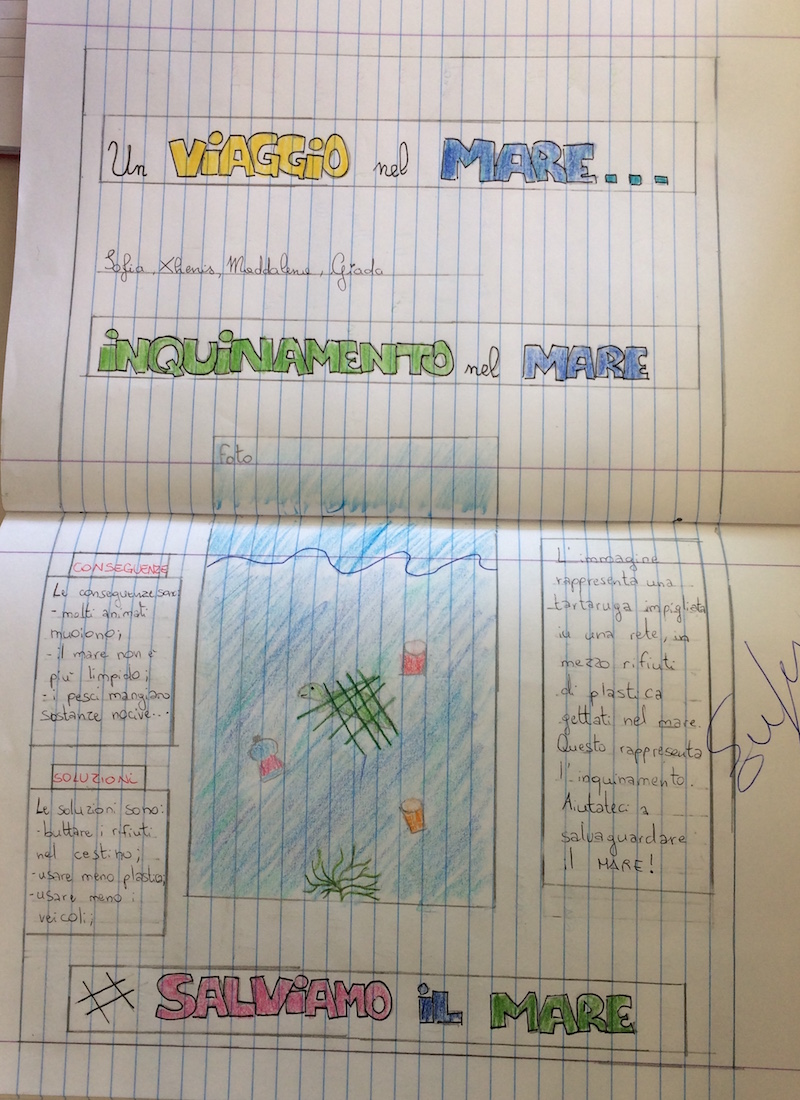 Un VIAGGIO nel MARE...
Sofia, Xhenis, Maddalena, Giada
INQUINAMENTO nel MARE
foto
CONSEGUENZE
Le conseguenze son:
- molti animati
muoiono;
- il mare non è
più limpido;
- i pesci mangiano
sostanze nocive...
SOLUZIONI
Le soluzioni sono:
- buttare i rifiuti
nel cestino;
- usare meno plastica;
- usare meno i
veicoli;
L'immagine
rappresenta una
tartaruga impigliata
in una rete, in
mezzo rifiuti
di plastica
gettati nel mare.
Questo rappresenta
l'inquinamento.
Aiutateci a
salvaguardare
il MARE!
# SALVIAMO IL MARE